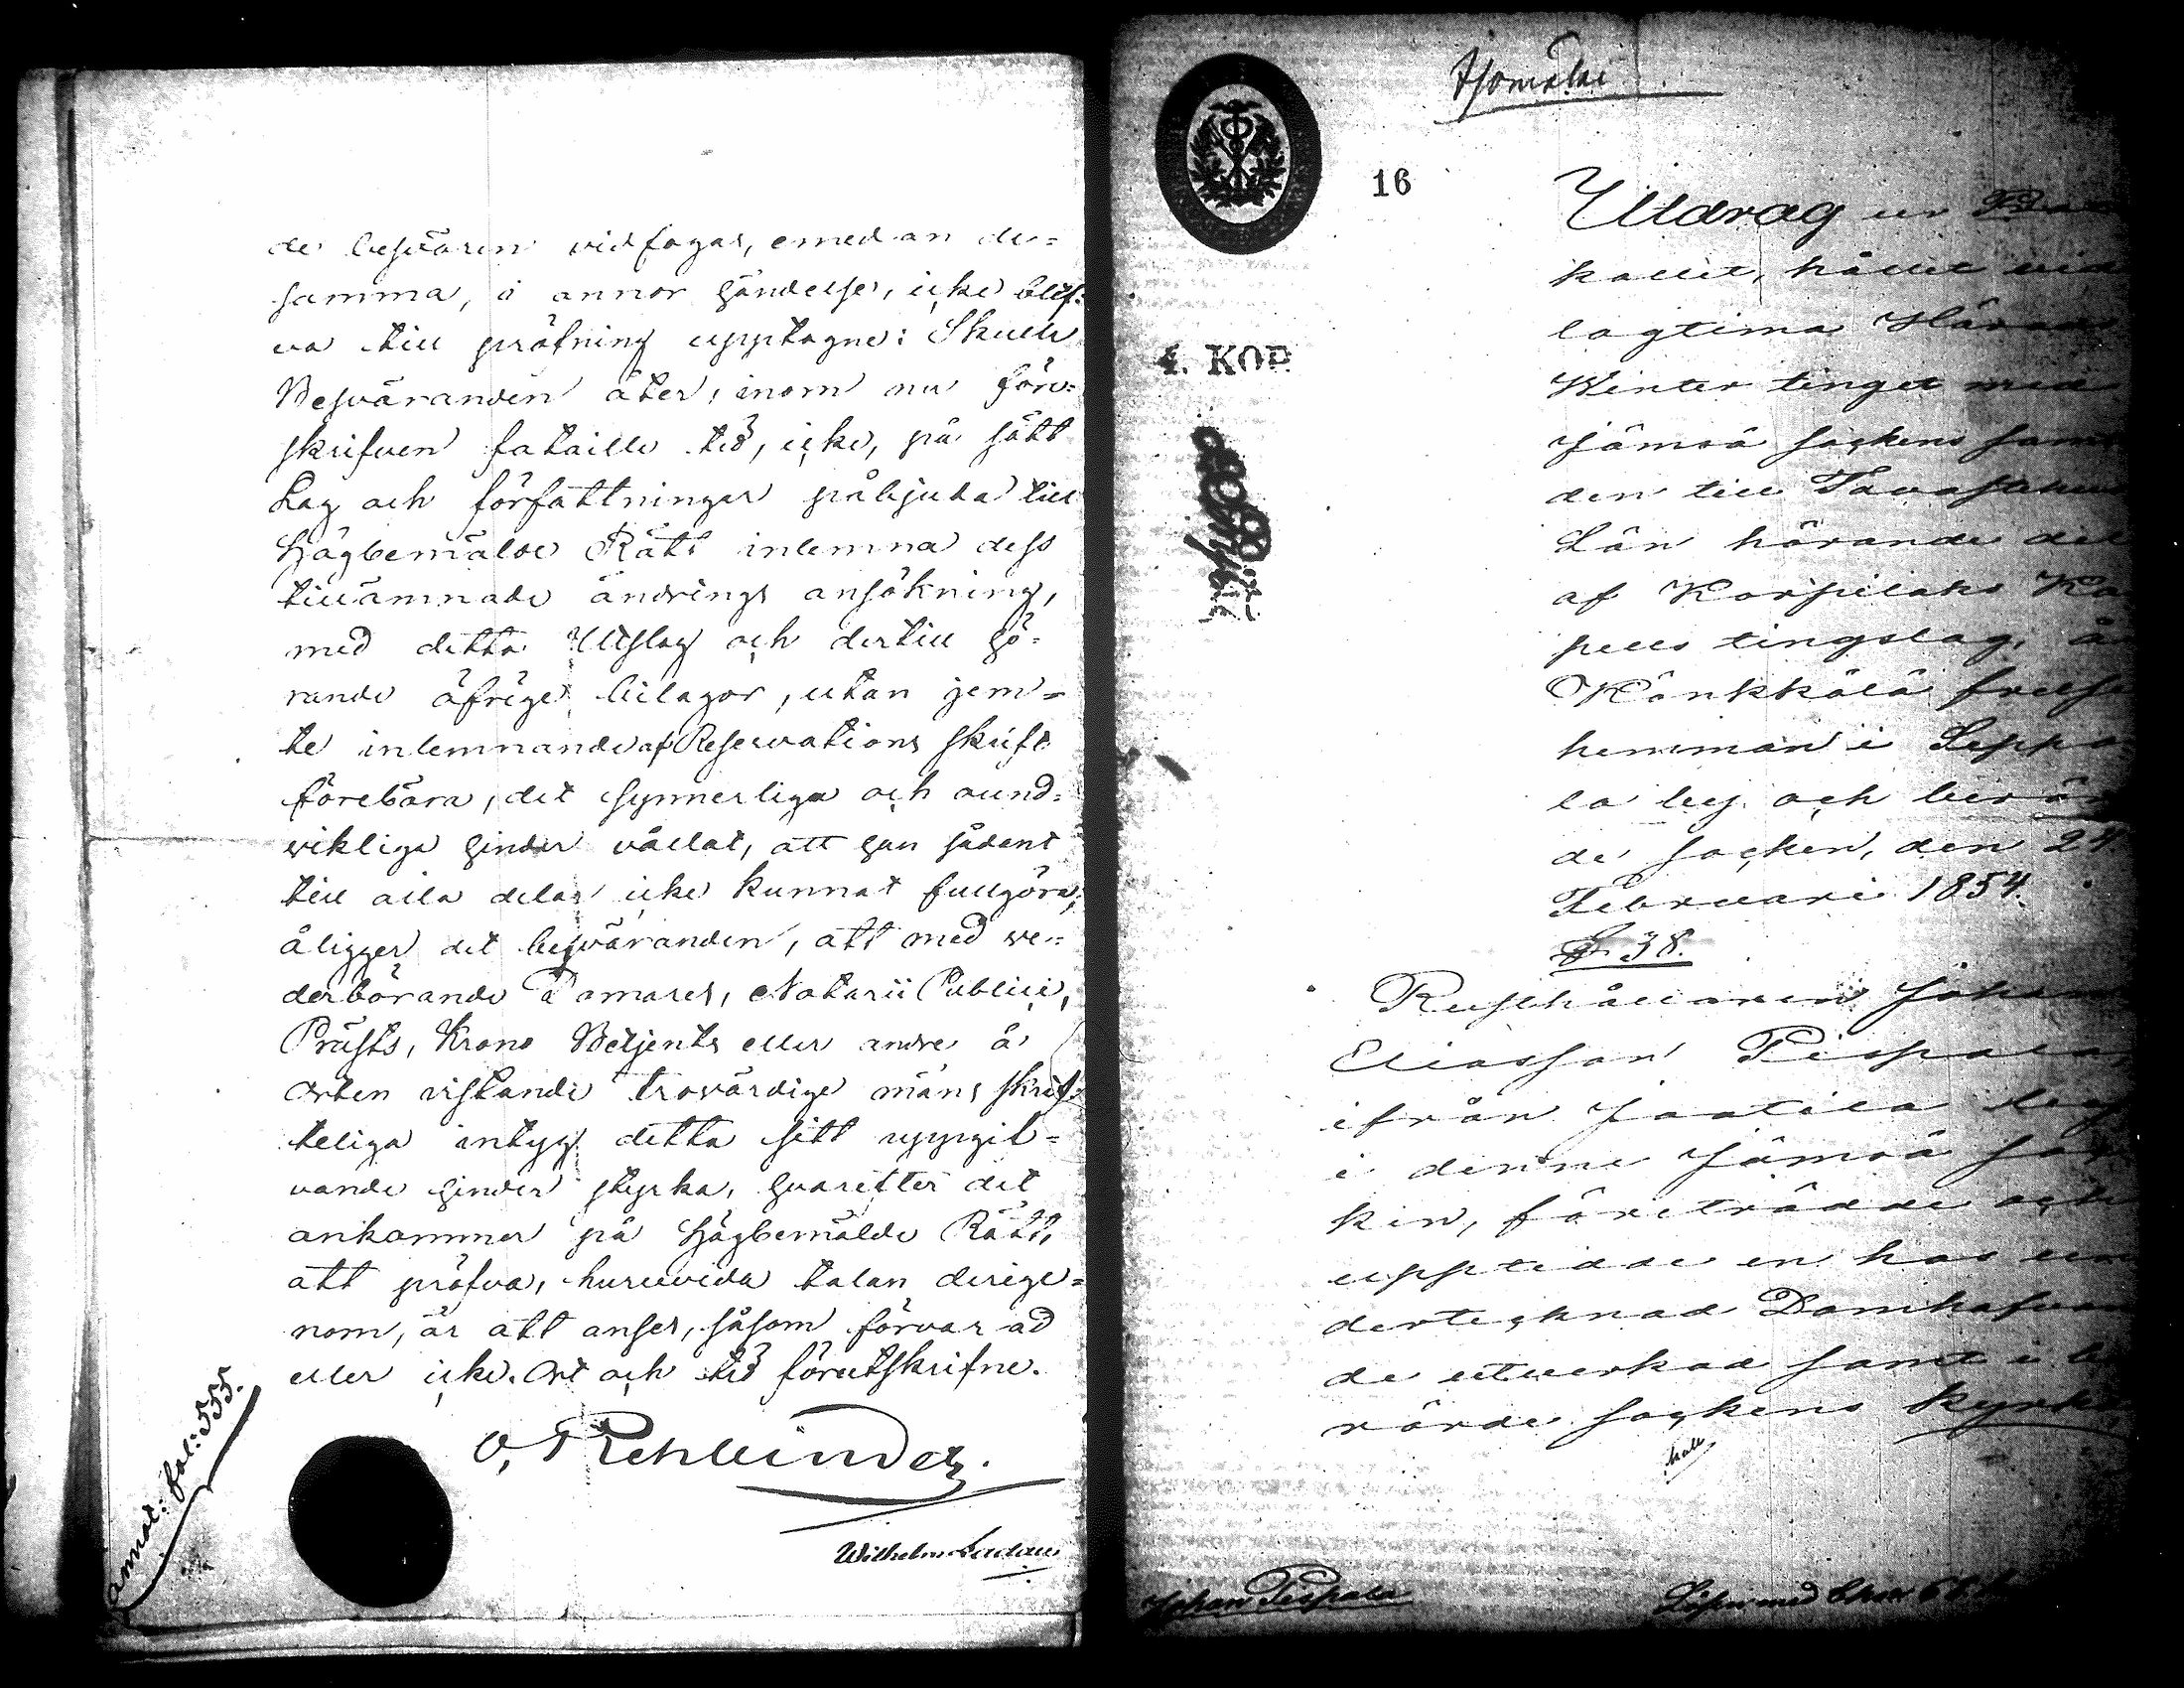 de besvären vidfogas, emedan de=
samma, i annor händelse, icke blif=
va till pröfning upptagne: Skulle
Besväranden åter, inom nu före=
skrifven fataille tid, icke, på sätt
Lag och författningar påbjuda till
Högbemälde Rätt inlemna dess
tillämnade ändrings ansökning,
med detta Utslag och dertill hö=
rande öfrige bilagor, utan jem=
te inlemnande af Reservations skrift
förebära, det synnerliga och ound=
vikliga hinder vållat, att han sådant
till alla delar icke kunnat fullgöra,
åligger det besväranden, att med ve=
derbörande Domares, Notarii Publici,
Prästs, Krono Betjents eller andre å
orten vistande trovärdige mäns skrif=
teliga intyg detta sitt uppgif=
vande hinder styrka, hvarefter det
ankommer på Högbemälde Rätt,
att pröfva, huruvida talan derige=
nom, är att anses, såsom förvarad
eller icke. Ort och tid förutskrifne.
O, Rehbinder.
Wilhelm
fol: 555.
16
4. KOP.
Utdrag ur
kollet, hållet vid
lagtima
Winter tinget med
Jämsä Sockens samt
den till Tavastehus
Län hörande del
af Korpilaks Ka
pells tingslag, å
Könkkälä frelse
hemman i Seppo
la by och berör
de Socken, den 24
Februari 1854.
§. 38.
Rusthållaren Johan
Eliasson Pispala,
ifrån Jaatila by
i denne Jämsä Soc
ken, företrädde och
upptedde en hos un
dertecknad Domhafvan
de utverkad samt i be
rörde Sockens Kyrka
Johan Pispala
Lösen med